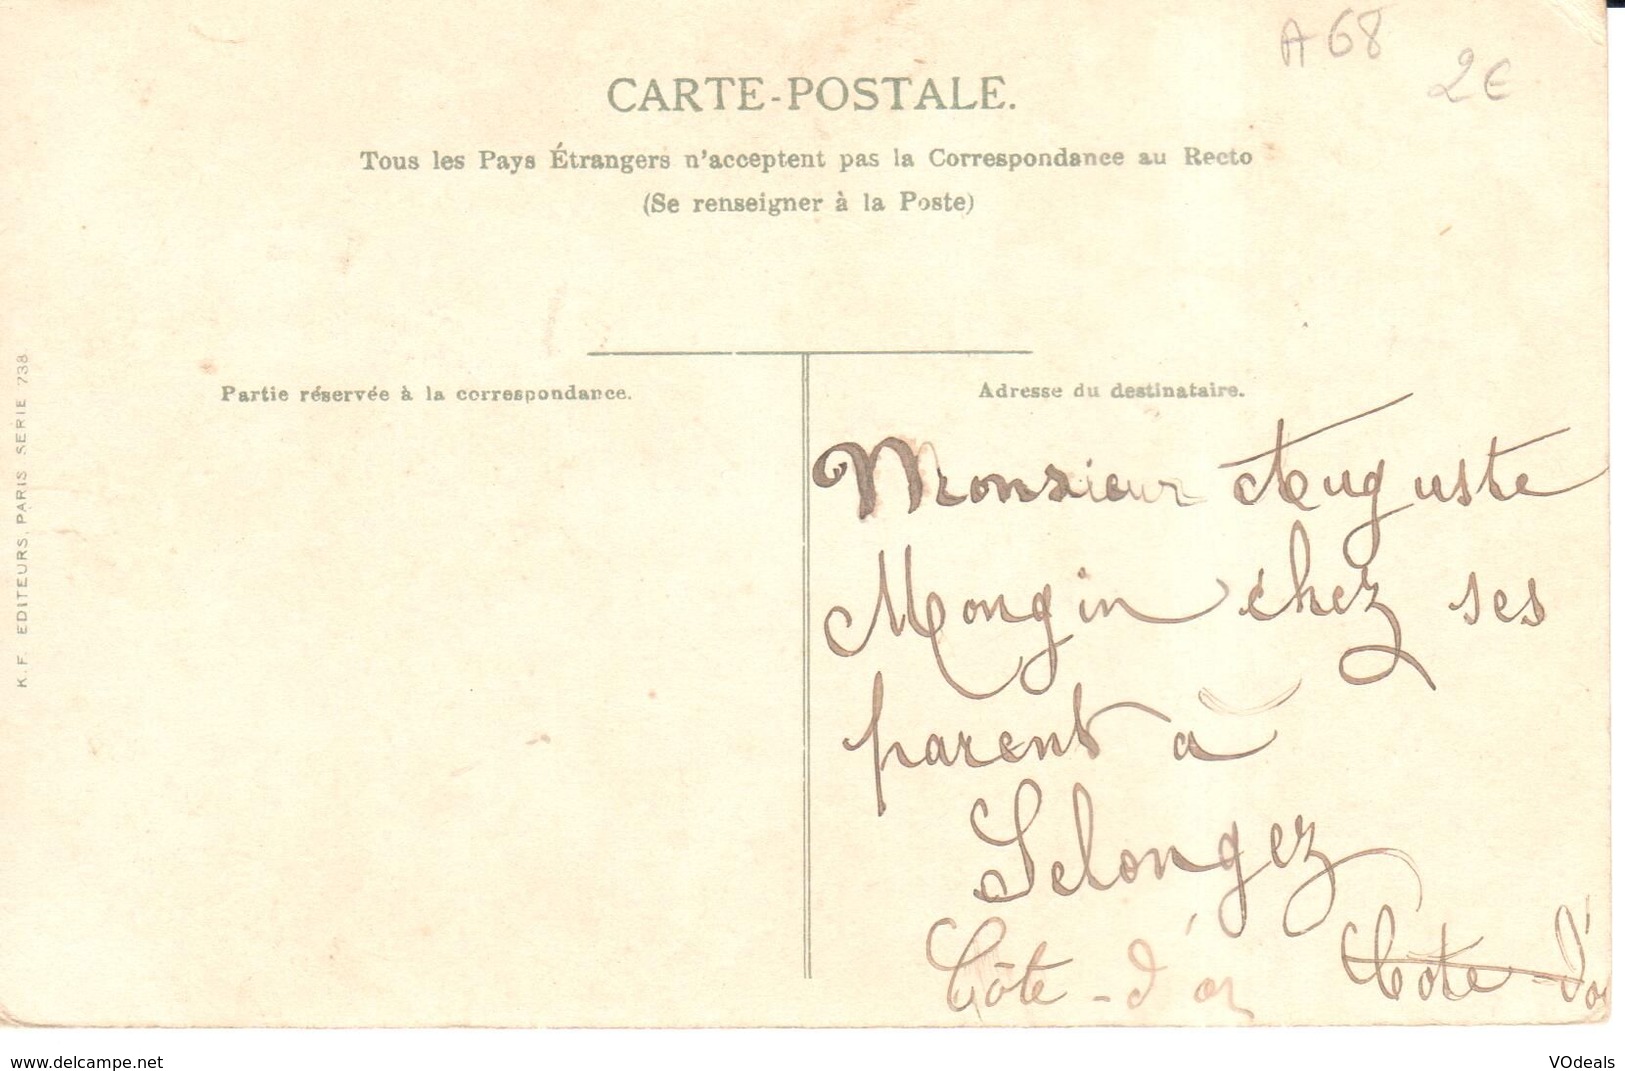 A 68
2€
CARTE-POSTALE.
Tous les Pays Étrangers n'acceptent pas la Correspondance au Recto
(Se renseigner à la Poste)
K.F. EDITEURS, PARIS SÉRIE 738
Partie réservée à la correspondance.
Adresse du destinataire.
Monsieur Auguste
Mongin chez ses
parent à
Selongez
Côte-d'or Cote-d'or
www.delcampe.net
VOdeals